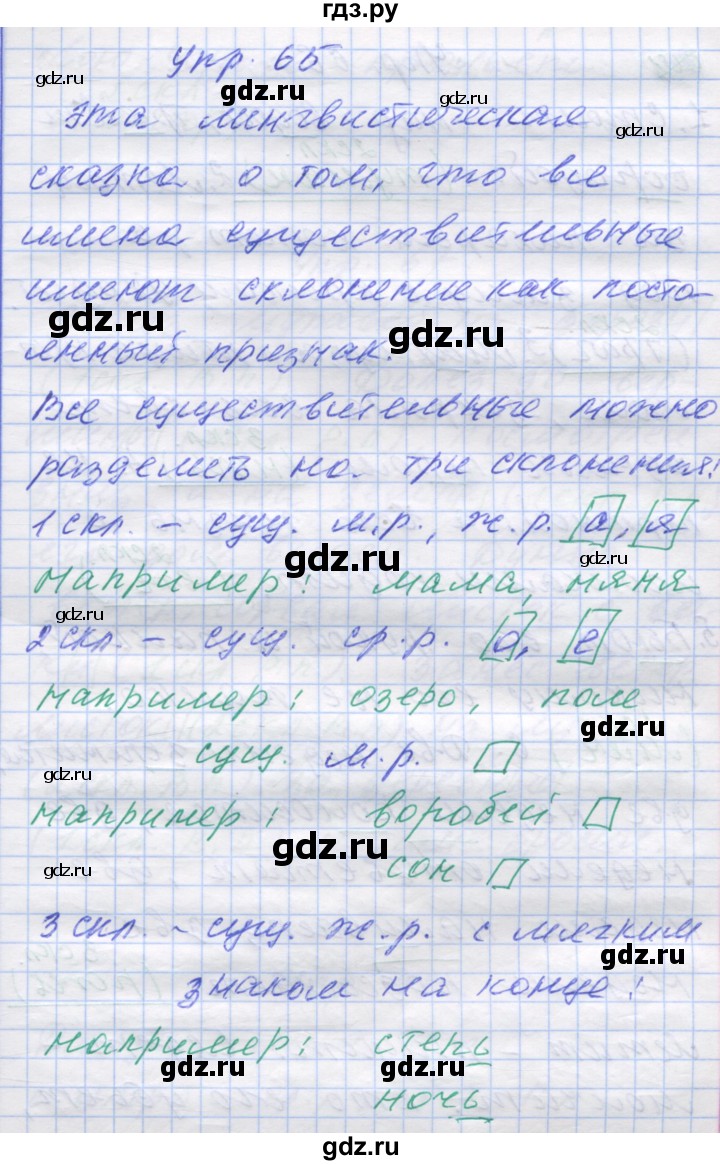 гдз.ру
упр. 65
gdz.ru gdz.ru
эта лингвистическая
gdz.ru
сказка о том, что все
gdz.ru
имена существительные
имеют склонение как посто-
gdz.ru gdz.ru
янный признак.
Все существительные можно
разделить на три склонения:
1 скл. – сущ. м.р., ж.р. а, я
gdz.ru gdz.ru
например: мама, няня
gdz.ru
2 скл. – сущ. ср.р. о, е
например: озеро, поле
gdz.ru
сущ. м.р.
gdz.ru
например: воробей
gdz.ru
сон
gdz.ru
3 скл. – сущ. ж.р. с мягким
gdz.ru
знаком на конце:
например: степь
gdz.ru gdz.ru
ночь
gdz.ru